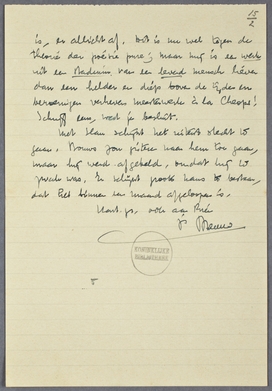 15/2
is, en allicht af. Dit is nu wel tegen de
theorie der poésie pure; maar mij is een werk
uit een Nadenium van een levend mensch liever
dan een helder en diep boven de tijden en
beroeringen verheven meesterwerk à la Cheops!
Schrijf eens, wat je besluit.
Met Slau schijnt het uiterst slecht te
gaan. Bouws zou gisteren naar hem toe gaan,
maar hij werd afgebeld, omdat hij te
zwak was. Er schijnt groote kans te bestaan,
dat het binnen een maand afgeloopen is.
Hart. gr. ook aan
je Menno
KONINKLIJKE
BIBLIOTHEEK